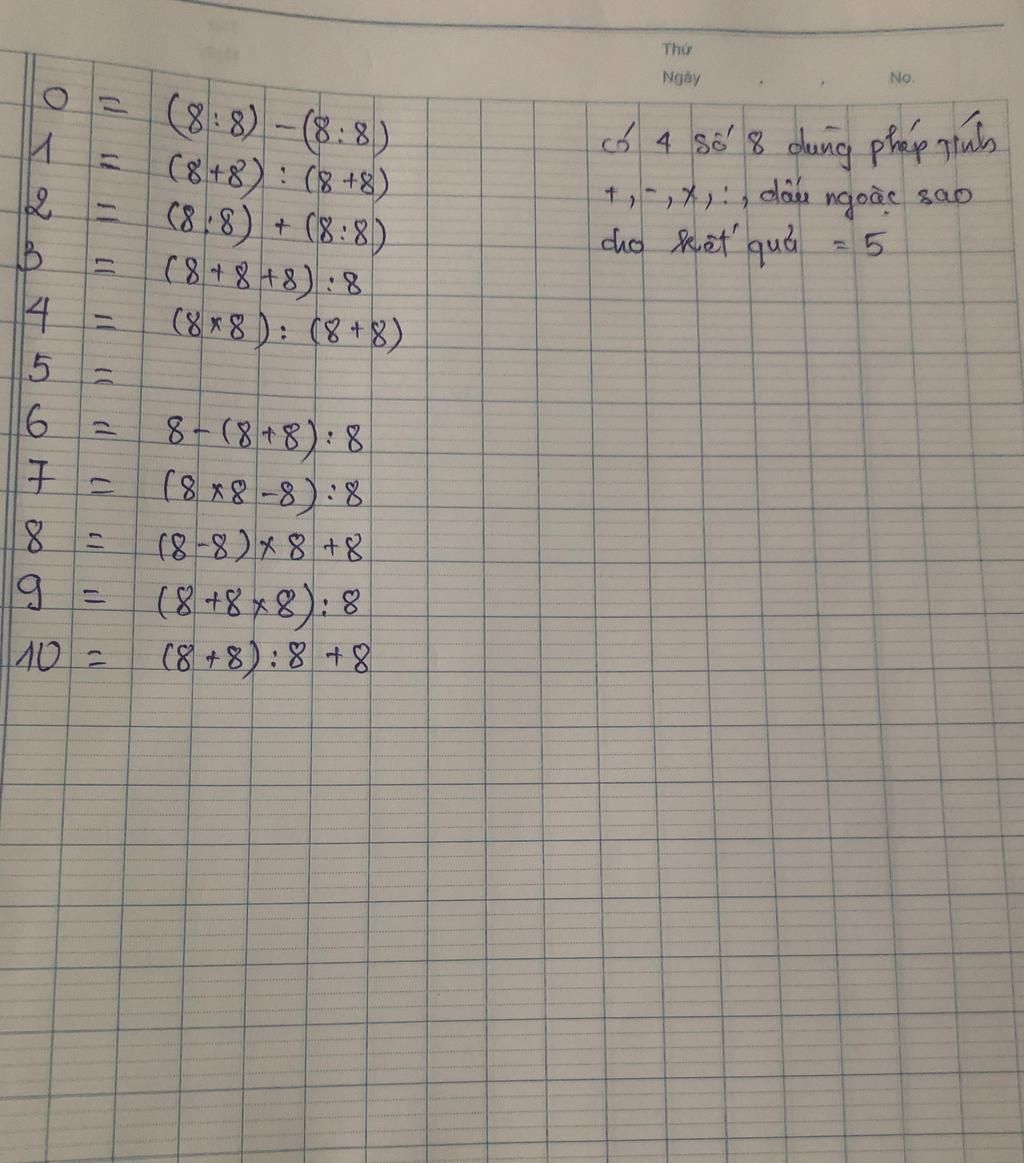 Thứ
Ngày . . No.
0 = (8:8) - (8:8)
1 = (8+8) : (8+8)
2 = (8:8) + (8:8)
3 = (8+8+8) : 8
4 = (8×8) : (8+8)
5 =
6 = 8 - (8+8) : 8
7 = (8×8-8) : 8
8 = (8-8) × 8 + 8
9 = (8+8×8) : 8
10 = (8+8) : 8 + 8
có 4 số 8 dùng phép tính
+, -, ×, :, dấu ngoặc sao
cho kết quả = 5